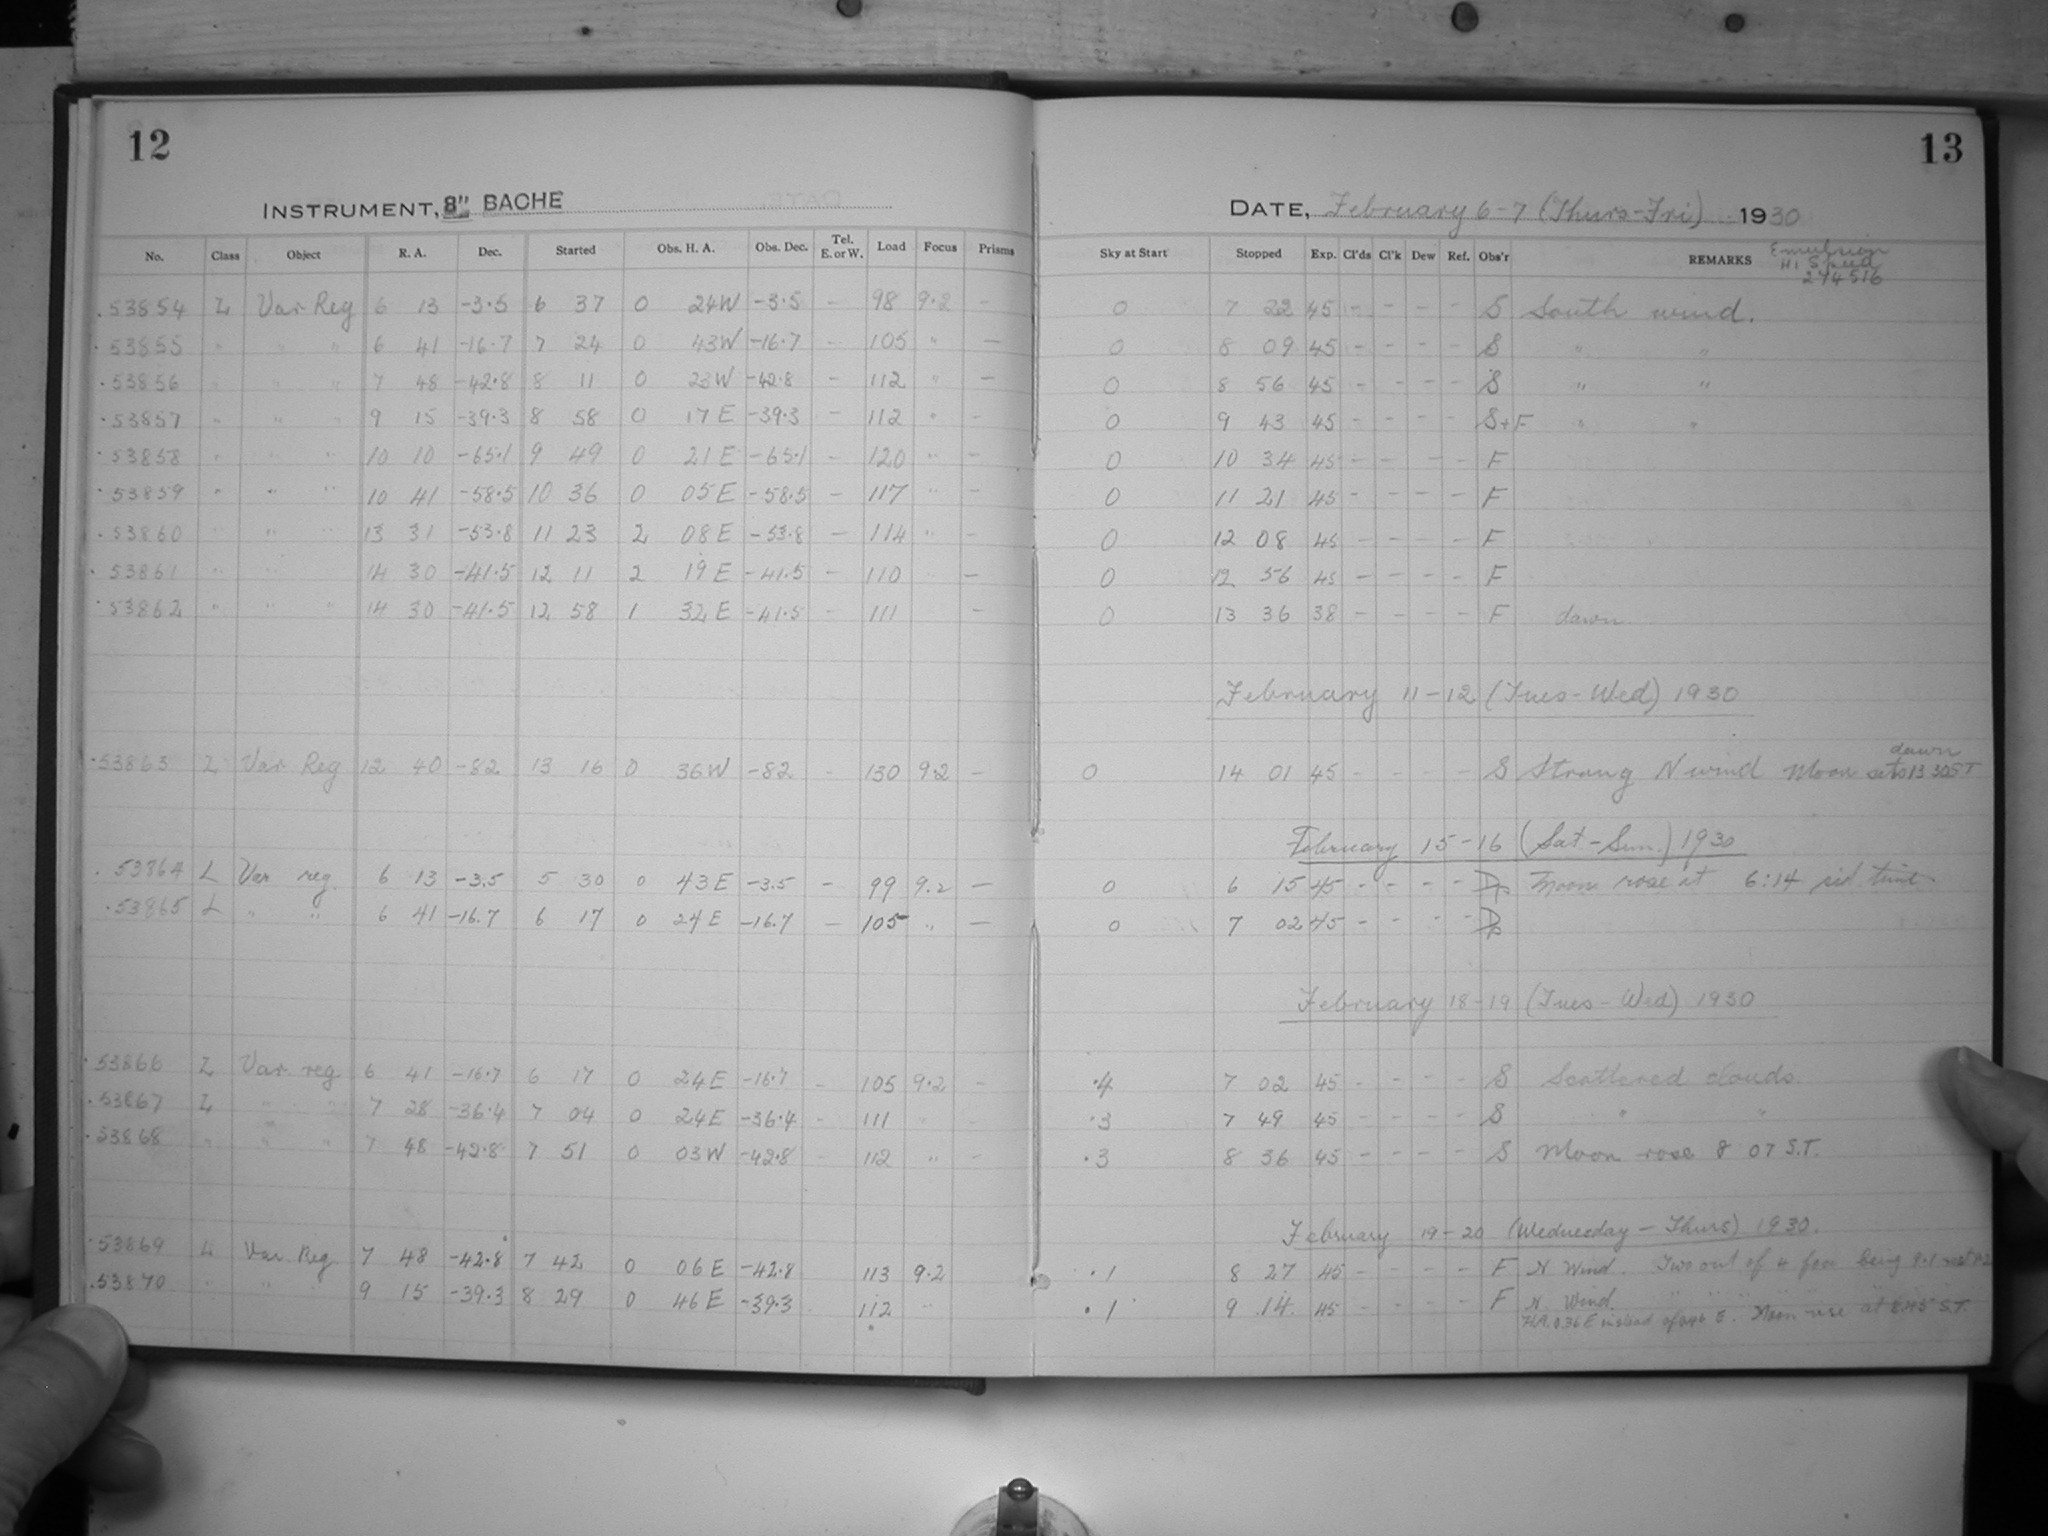 12
INSTRUMENT, 8" BACHE
No. Class Object R. A. Dec. Started Obs. H. A. Obs. Dec. Tel. E. or W. Load Focus Prisms
.53854 L Var Reg 6 13 -3.5 6 37 0 24W -3.5 - 98 9.2 -
.53855 " " " 6 41 -16.7 7 24 0 43W -16.7 - 105 " -
.53856 " " " 7 48 -42.8 8 11 0 23W -42.8 - 112 " -
.53857 " " " 9 15 -39.3 8 58 0 17E -39.3 - 112 " -
.53858 " " " 10 10 -65.1 9 49 0 21E -65.1 - 120 " -
.53859 " " " 10 41 -58.5 10 36 0 05E -58.5 - 117 " -
.53860 " " " 13 31 -53.8 11 23 2 08E -53.8 - 114 " -
.53861 " " " 14 30 -41.5 12 11 2 19E -41.5 - 110 " -
.53862 " " " 14 30 -41.5 12 58 1 32E -41.5 - 111 -
.53863 L Var Reg 12 40 -82 13 16 0 36W -82 - 130 9.2 -
.53864 L Var reg. 6 13 -3.5 5 30 0 43E -3.5 - 99 9.2 -
.53865 L " " 6 41 -16.7 6 17 0 24E -16.7 - 105 " -
.53866 L Var reg 6 41 -16.7 6 17 0 24E -16.7 - 105 9.2 -
.53867 L " " 7 28 -36.4 7 04 0 24E -36.4 - 111 " -
.53868 " " " 7 48 -42.8 7 51 0 03W -42.8 - 112 " -
.53869 L Var Reg 7 48 -42.8 7 42 0 06E -42.8 113 9.2
.53870 " " " 9 15 -39.3 8 29 0 46E -39.3 112 "
13
DATE, February 6-7 (Thurs-Fri) 1930
Sky at Start Stopped Exp. Cl'ds Cl'k Dew Ref. Obs'r REMARKS Emulsion
Hi Speed
274516
0 7 22 45 - - - - S South wind.
0 8 09 45 - - - - S " "
0 8 56 45 - - - - S " "
0 9 43 45 - - - - S+F " "
0 10 34 45 - - - - F
0 11 21 45 - - - - F
0 12 08 45 - - - - F
0 12 56 45 - - - - F
0 13 36 38 - - - - F dawn
February 11-12 (Tues-Wed) 1930
dawn
0 14 01 45 - - - - S Strong N wind Moon sets 13 30 ST
February 15-16 (Sat-Sun.) 1930
0 6 15 45 - - - - Moon rose at 6:14 sid time
0 7 02 45 - - - -
February 18-19 (Tues-Wed) 1930
.4 7 02 45 - - - - S Scattered clouds.
.3 7 49 45 - - - - S " "
.3 8 36 45 - - - - S Moon rose 8 07 S.T.
February 19-20 (Wednesday-Thurs) 1930.
.1 8 27 45 - - - - F N Wind. Two out of 4 foci being 9.1 rest 9.2
.1 9 14 45 - - - - F N. Wind. " " " "
H.A. 0.36E instead of 0.46 E. Moon rise at 8:45 S.T.